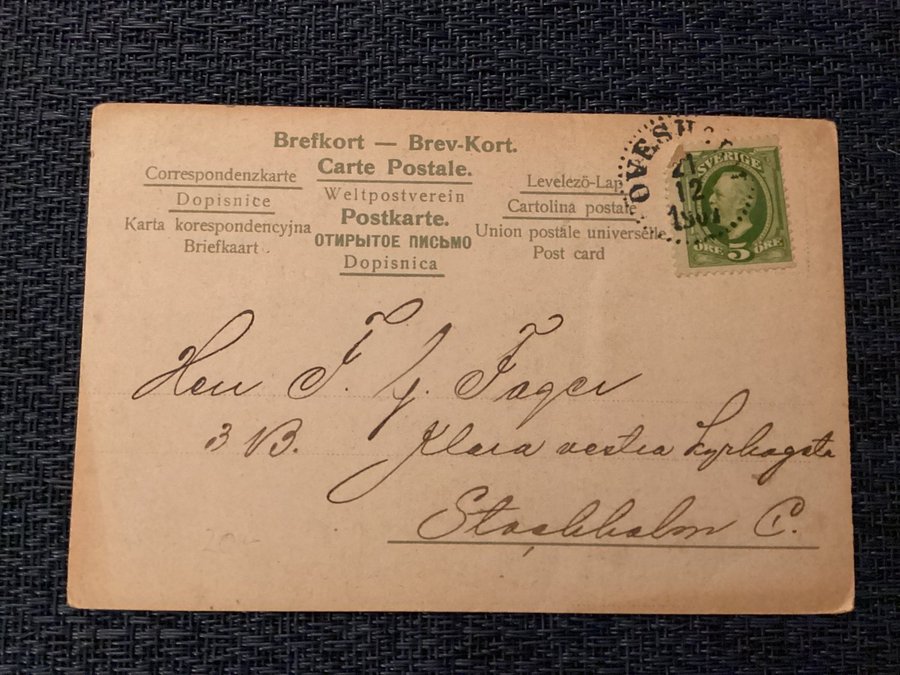 Brefkort — Brev-Kort.
Carte Postale.
Weltpostverein
Postkarte.
ОТКРЫТОЕ ПИСЬМО
Dopisnica
Correspondenzkarte
Dopisnice
Karta korespondencyjna
Briefkaart
Levelezö-Lap
Cartolina postale
Union postale universelle
Post card
21
12
SVERIGE
ÖRE 5 ÖRE
Herr F. G. Fager
3 B. Klara vestra Kyrkogata
Stockholm C.